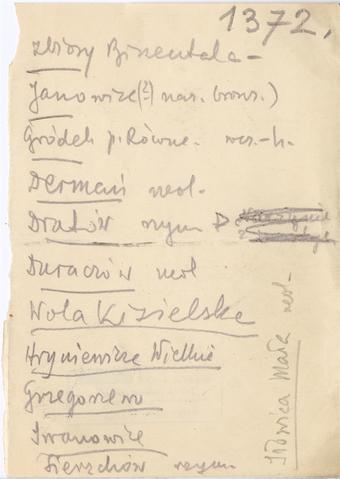 1372.
zbiory Bizentala -
Janowice (?) nar. (bronz.)
Gródek p. Równe. wcz.-h.
Dermań neol.
Dratów rzym
Duraczów neol
Wola Kisielska
Hryniewicze Wielkie
Grzegorzew
Iwanowice
Sierzchów rzym
Mała neol-